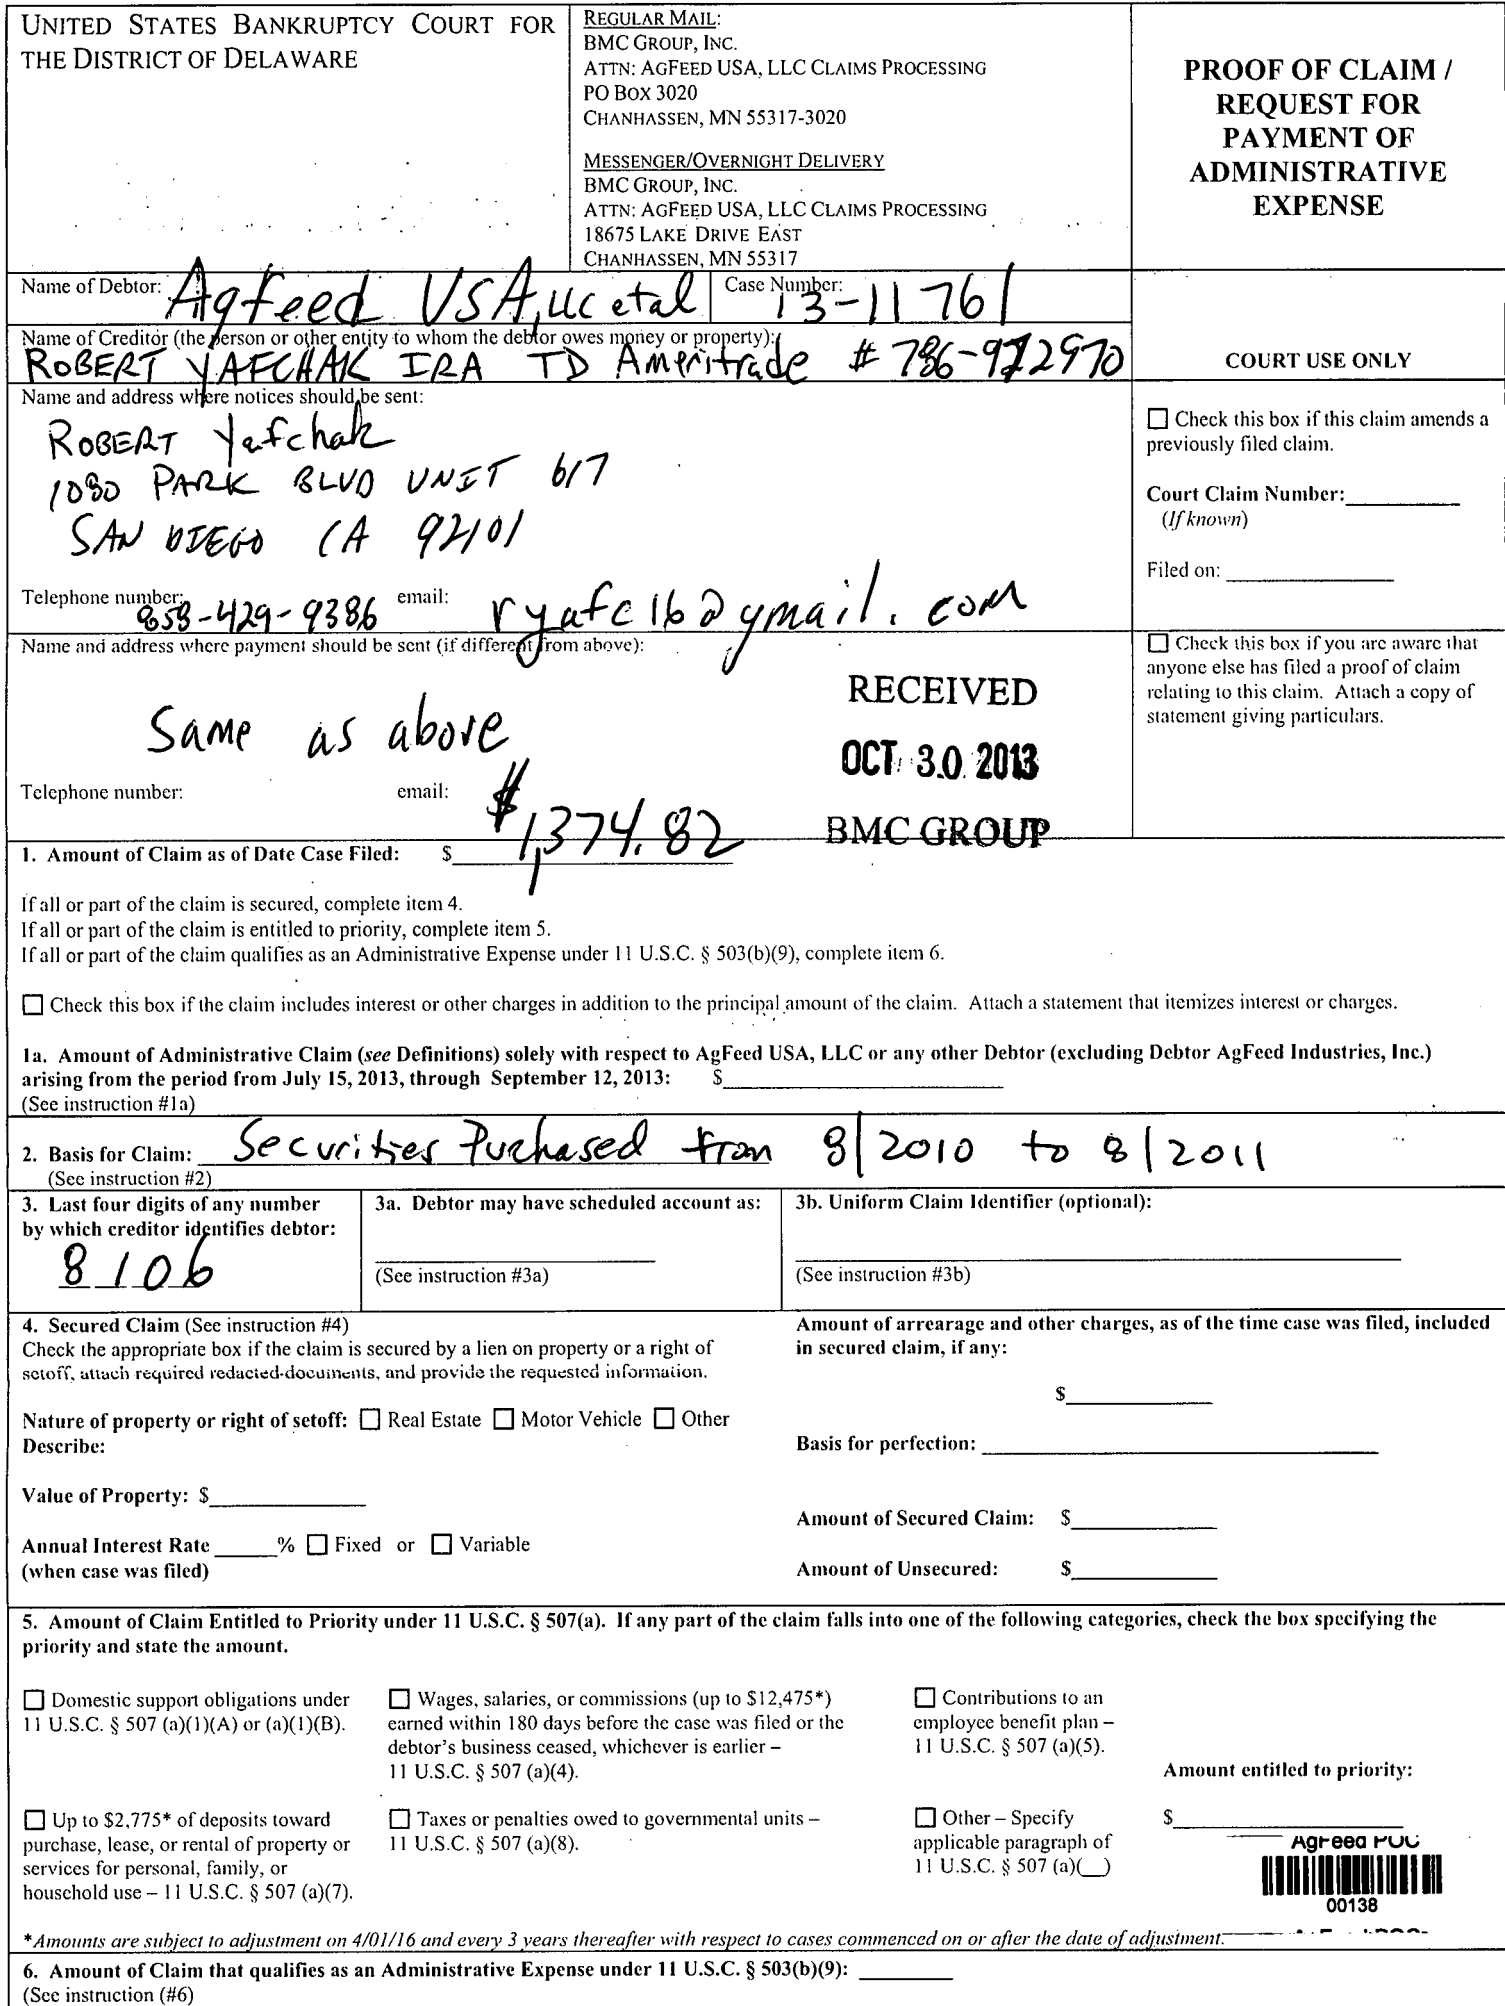 UNITED STATES BANKRUPTCY COURT FOR
THE DISTRICT OF DELAWARE
REGULAR MAIL:
BMC GROUP, INC.
ATTN: AGFEED USA, LLC CLAIMS PROCESSING
PO BOX 3020
CHANHASSEN, MN 55317-3020
MESSENGER/OVERNIGHT DELIVERY
BMC GROUP, INC.
ATTN: AGFEED USA, LLC CLAIMS PROCESSING
18675 LAKE DRIVE EAST
CHANHASSEN, MN 55317
PROOF OF CLAIM /
REQUEST FOR
PAYMENT OF
ADMINISTRATIVE
EXPENSE
Name of Debtor: AgFeed USA, LLC et al
Case Number: 13-11761
Name of Creditor (the person or other entity to whom the debtor owes money or property):
ROBERT YAFCHAK IRA TD Ameritrade # 786-972970
COURT USE ONLY
Name and address where notices should be sent:
ROBERT Yafchak
1080 PARK BLVD UNIT 617
SAN DIEGO CA 92101
Telephone number: 858-429-9386 email: ryafc16@ymail.com
☐ Check this box if this claim amends a
previously filed claim.
Court Claim Number:
(If known)
Filed on:
Name and address where payment should be sent (if different from above):
Same as above
Telephone number: email:
RECEIVED
OCT 30 2013
BMC GROUP
☐ Check this box if you are aware that
anyone else has filed a proof of claim
relating to this claim. Attach a copy of
statement giving particulars.
1. Amount of Claim as of Date Case Filed: $ $1,374.82
If all or part of the claim is secured, complete item 4.
If all or part of the claim is entitled to priority, complete item 5.
If all or part of the claim qualifies as an Administrative Expense under 11 U.S.C. § 503(b)(9), complete item 6.
☐ Check this box if the claim includes interest or other charges in addition to the principal amount of the claim. Attach a statement that itemizes interest or charges.
1a. Amount of Administrative Claim (see Definitions) solely with respect to AgFeed USA, LLC or any other Debtor (excluding Debtor AgFeed Industries, Inc.)
arising from the period from July 15, 2013, through September 12, 2013: $
(See instruction #1a)
2. Basis for Claim: Securities Purchased from 8/2010 to 8/2011
(See instruction #2)
3. Last four digits of any number
by which creditor identifies debtor:
8106
3a. Debtor may have scheduled account as:
(See instruction #3a)
3b. Uniform Claim Identifier (optional):
(See instruction #3b)
4. Secured Claim (See instruction #4)
Check the appropriate box if the claim is secured by a lien on property or a right of
setoff, attach required redacted documents, and provide the requested information.
Nature of property or right of setoff: ☐ Real Estate ☐ Motor Vehicle ☐ Other
Describe:
Value of Property: $
Annual Interest Rate % ☐ Fixed or ☐ Variable
(when case was filed)
Amount of arrearage and other charges, as of the time case was filed, included
in secured claim, if any:
$
Basis for perfection:
Amount of Secured Claim: $
Amount of Unsecured: $
5. Amount of Claim Entitled to Priority under 11 U.S.C. § 507(a). If any part of the claim falls into one of the following categories, check the box specifying the
priority and state the amount.
☐ Domestic support obligations under
11 U.S.C. § 507 (a)(1)(A) or (a)(1)(B).
☐ Wages, salaries, or commissions (up to $12,475*)
earned within 180 days before the case was filed or the
debtor's business ceased, whichever is earlier –
11 U.S.C. § 507 (a)(4).
☐ Contributions to an
employee benefit plan –
11 U.S.C. § 507 (a)(5).
Amount entitled to priority:
☐ Up to $2,775* of deposits toward
purchase, lease, or rental of property or
services for personal, family, or
household use – 11 U.S.C. § 507 (a)(7).
☐ Taxes or penalties owed to governmental units –
11 U.S.C. § 507 (a)(8).
☐ Other – Specify
applicable paragraph of
11 U.S.C. § 507 (a)(__)
$
AgFeed POC
00138
*Amounts are subject to adjustment on 4/01/16 and every 3 years thereafter with respect to cases commenced on or after the date of adjustment.
6. Amount of Claim that qualifies as an Administrative Expense under 11 U.S.C. § 503(b)(9):
(See instruction (#6)